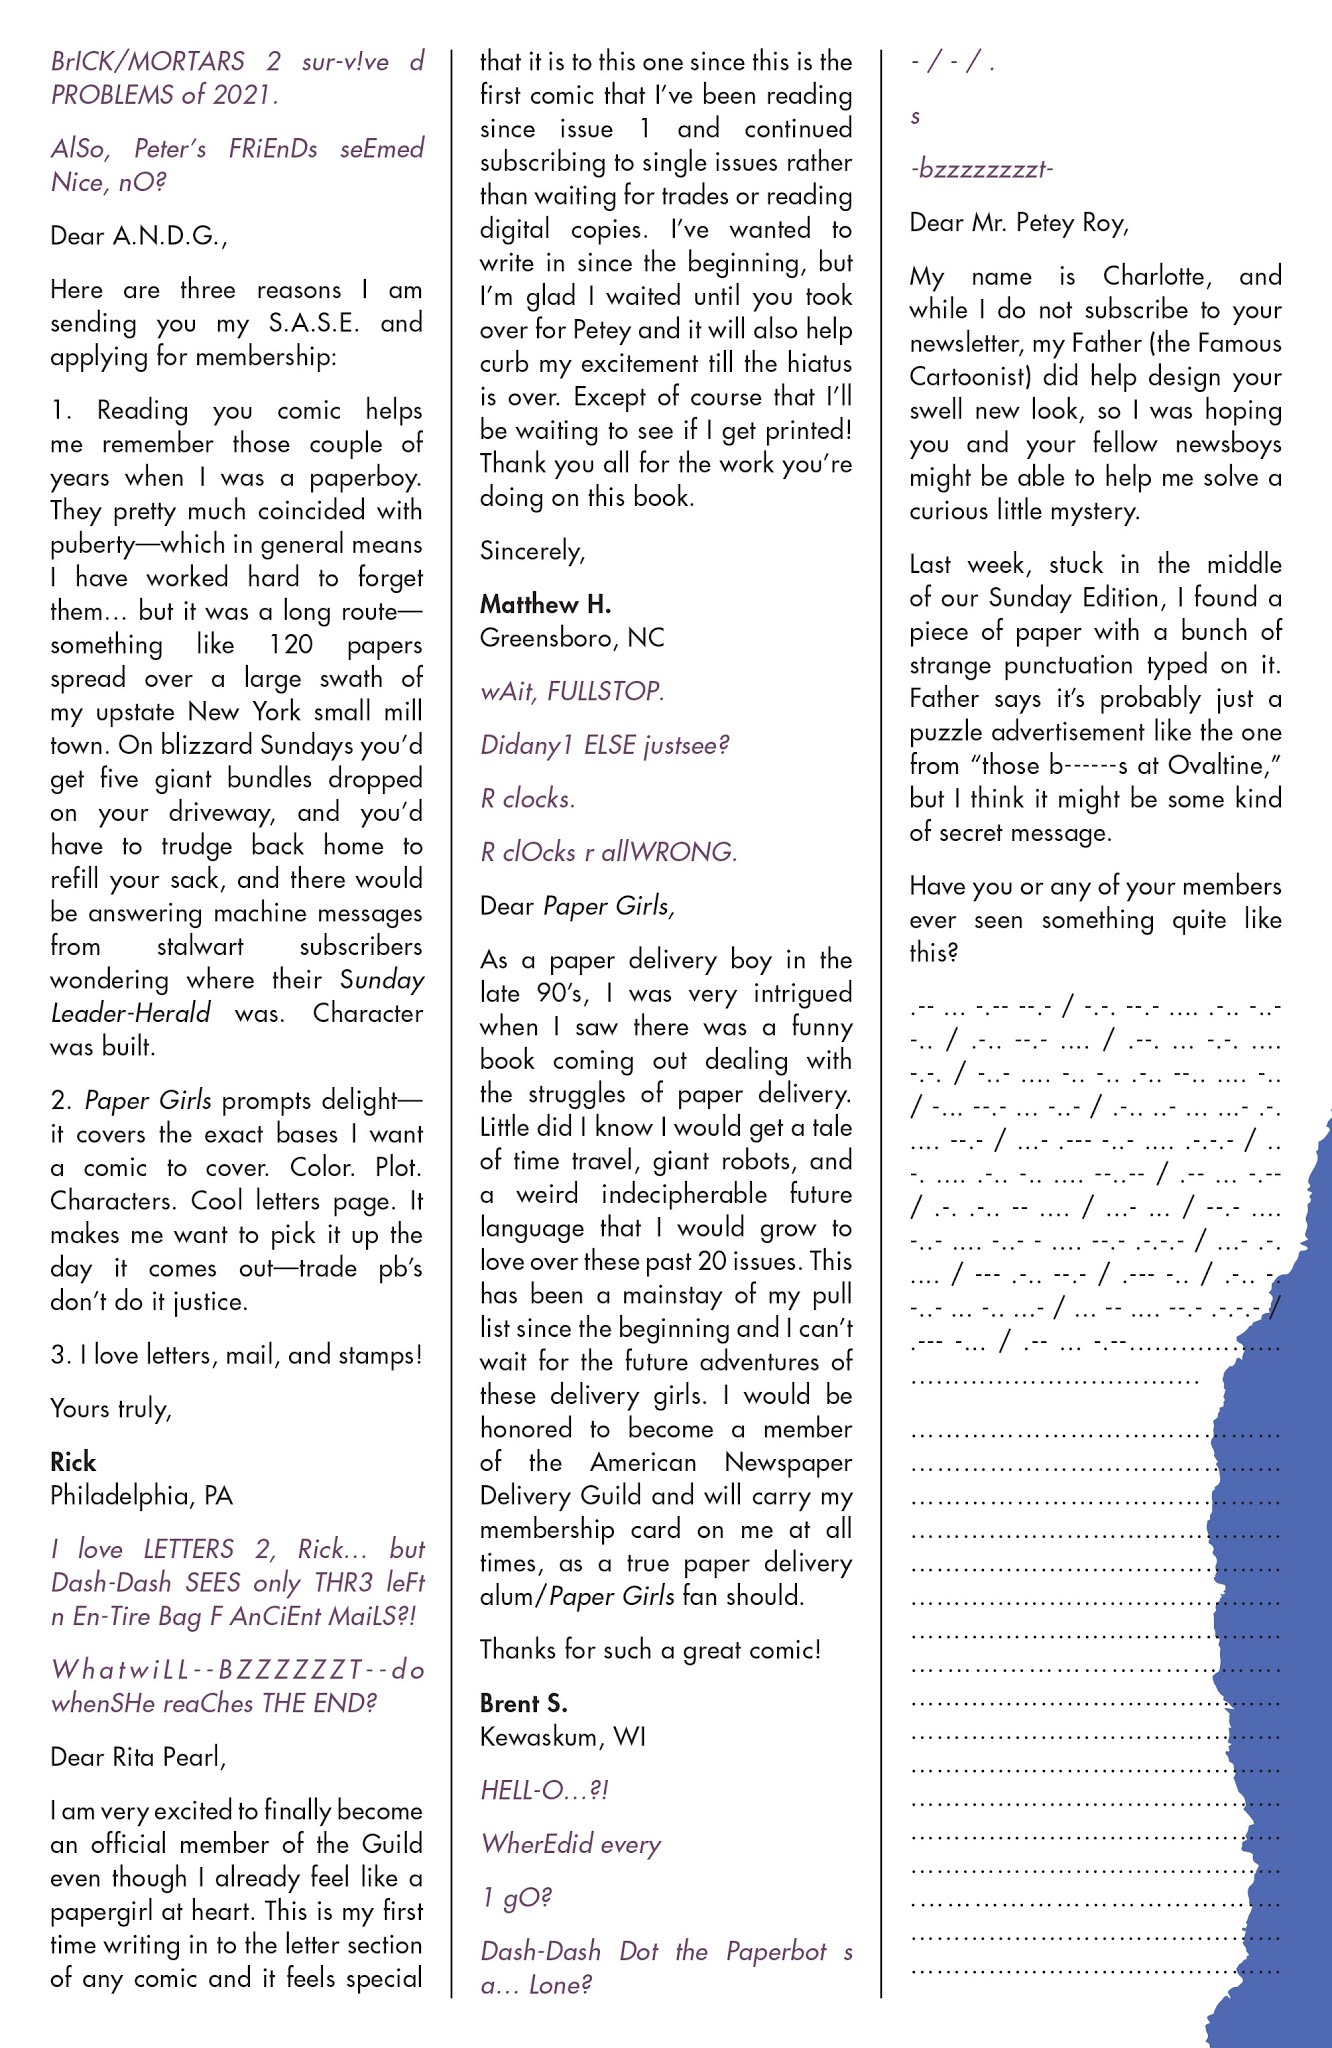 BrICK/MORTARS 2 sur-v!ve d
PROBLEMS of 2021.
AlSo, Peter’s FRiEnDs seEmed
Nice, nO?
Dear A.N.D.G.,
Here are three reasons I am
sending you my S.A.S.E. and
applying for membership:
1. Reading you comic helps
me remember those couple of
years when I was a paperboy.
They pretty much coincided with
puberty—which in general means
I have worked hard to forget
them… but it was a long route—
something like 120 papers
spread over a large swath of
my upstate New York small mill
town. On blizzard Sundays you’d
get five giant bundles dropped
on your driveway, and you’d
have to trudge back home to
refill your sack, and there would
be answering machine messages
from stalwart subscribers
wondering where their Sunday
Leader-Herald was. Character
was built.
2. Paper Girls prompts delight—
it covers the exact bases I want
a comic to cover. Color. Plot.
Characters. Cool letters page. It
makes me want to pick it up the
day it comes out—trade pb’s
don’t do it justice.
3. I love letters, mail, and stamps!
Yours truly,
Rick
Philadelphia, PA
I love LETTERS 2, Rick… but
Dash-Dash SEES only THR3 leFt
n En-Tire Bag F AnCiEnt MaiLS?!
WhatwiLL--BZZZZZZT--do
whenSHe reaChes THE END?
Dear Rita Pearl,
I am very excited to finally become
an official member of the Guild
even though I already feel like a
papergirl at heart. This is my first
time writing in to the letter section
of any comic and it feels special
that it is to this one since this is the
first comic that I’ve been reading
since issue 1 and continued
subscribing to single issues rather
than waiting for trades or reading
digital copies. I’ve wanted to
write in since the beginning, but
I’m glad I waited until you took
over for Petey and it will also help
curb my excitement till the hiatus
is over. Except of course that I’ll
be waiting to see if I get printed!
Thank you all for the work you’re
doing on this book.
Sincerely,
Matthew H.
Greensboro, NC
wAit, FULLSTOP.
Didany1 ELSE justsee?
R clocks.
R clOcks r allWRONG.
Dear Paper Girls,
As a paper delivery boy in the
late 90’s, I was very intrigued
when I saw there was a funny
book coming out dealing with
the struggles of paper delivery.
Little did I know I would get a tale
of time travel, giant robots, and
a weird indecipherable future
language that I would grow to
love over these past 20 issues. This
has been a mainstay of my pull
list since the beginning and I can’t
wait for the future adventures of
these delivery girls. I would be
honored to become a member
of the American Newspaper
Delivery Guild and will carry my
membership card on me at all
times, as a true paper delivery
alum/Paper Girls fan should.
Thanks for such a great comic!
Brent S.
Kewaskum, WI
HELL-O…?!
WherEdid every
1 gO?
Dash-Dash Dot the Paperbot s
a… Lone?
- / - / .
s
-bzzzzzzzzt-
Dear Mr. Petey Roy,
My name is Charlotte, and
while I do not subscribe to your
newsletter, my Father (the Famous
Cartoonist) did help design your
swell new look, so I was hoping
you and your fellow newsboys
might be able to help me solve a
curious little mystery.
Last week, stuck in the middle
of our Sunday Edition, I found a
piece of paper with a bunch of
strange punctuation typed on it.
Father says it’s probably just a
puzzle advertisement like the one
from “those b------s at Ovaltine,”
but I think it might be some kind
of secret message.
Have you or any of your members
ever seen something quite like
this?
.-- ... -.-- --.- / -.-. --.- .... .-.. -..-
-.. / .-.. --.- .... / .--. ... -.-. ....
-.-. / -..- .... -.. -.. .-.. --.. .... -..
/ -... --.- ... -..- / .-.. ..- ... ...- .-.
.... --.- / ...- .--- -..- .... .-.-.- / ..
-. .... .-.. -.. .... --..-- / .-- ... -.--
/ .-. .-.. -- .... / ...- ... / --.- ....
-..- .... -..- - .... --.- .-.-.- / ...- .-.
.... / --- .-.. --.- / .--- -.. / .-.. -.
-..- ... -.. ...- / ... -- .... --.- .-.-.- /
.--- -... / .-- ... -.--.....................